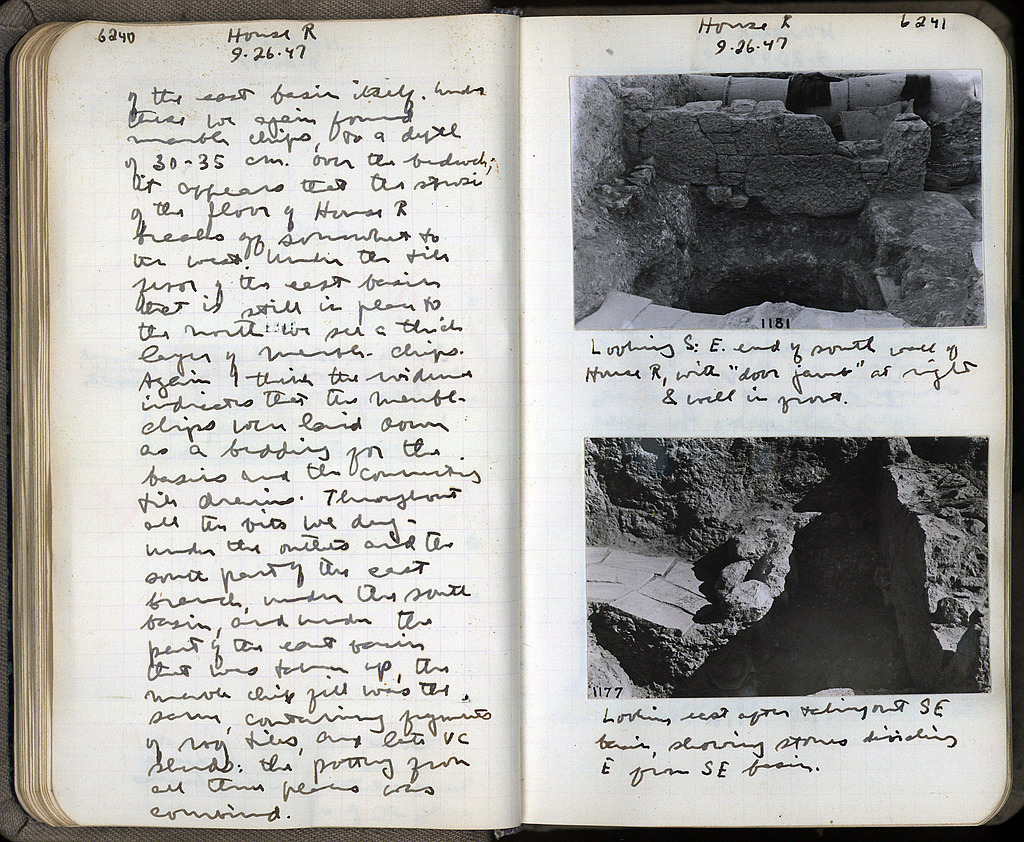 6240
House R
9.26.47
of the east basin itself. Under
these we again found
marble chips, to a depth
of 30-35 cm. over the bedrock;
it appears that the
of the floor of House R
breaks off somewhat to
the west. Under the tile
floor of the east basin
that is still in place to
the north we see a thick
layer of marble chips.
Again I think the evidence
indicates that the marble
chips were laid down
as a bedding for the
basins and the connecting
tile drains. Throughout
all the bits we dug -
under the outlets and the
south part of the east
branch, under the south
basin, and under the
part of the east basin
that was taken up, the
marble chip fill was the
same, containing fragments
of roof tiles, and late V c
sherds: the pottery from
all these places was
combined.
House R
6241
9.26.47
1181
Looking S: E. end of south wall of
House R, with "door jamb" at right
& well in front.
1177
Looking east after taking out SE
basin, showing stones dividing
E from SE basin.